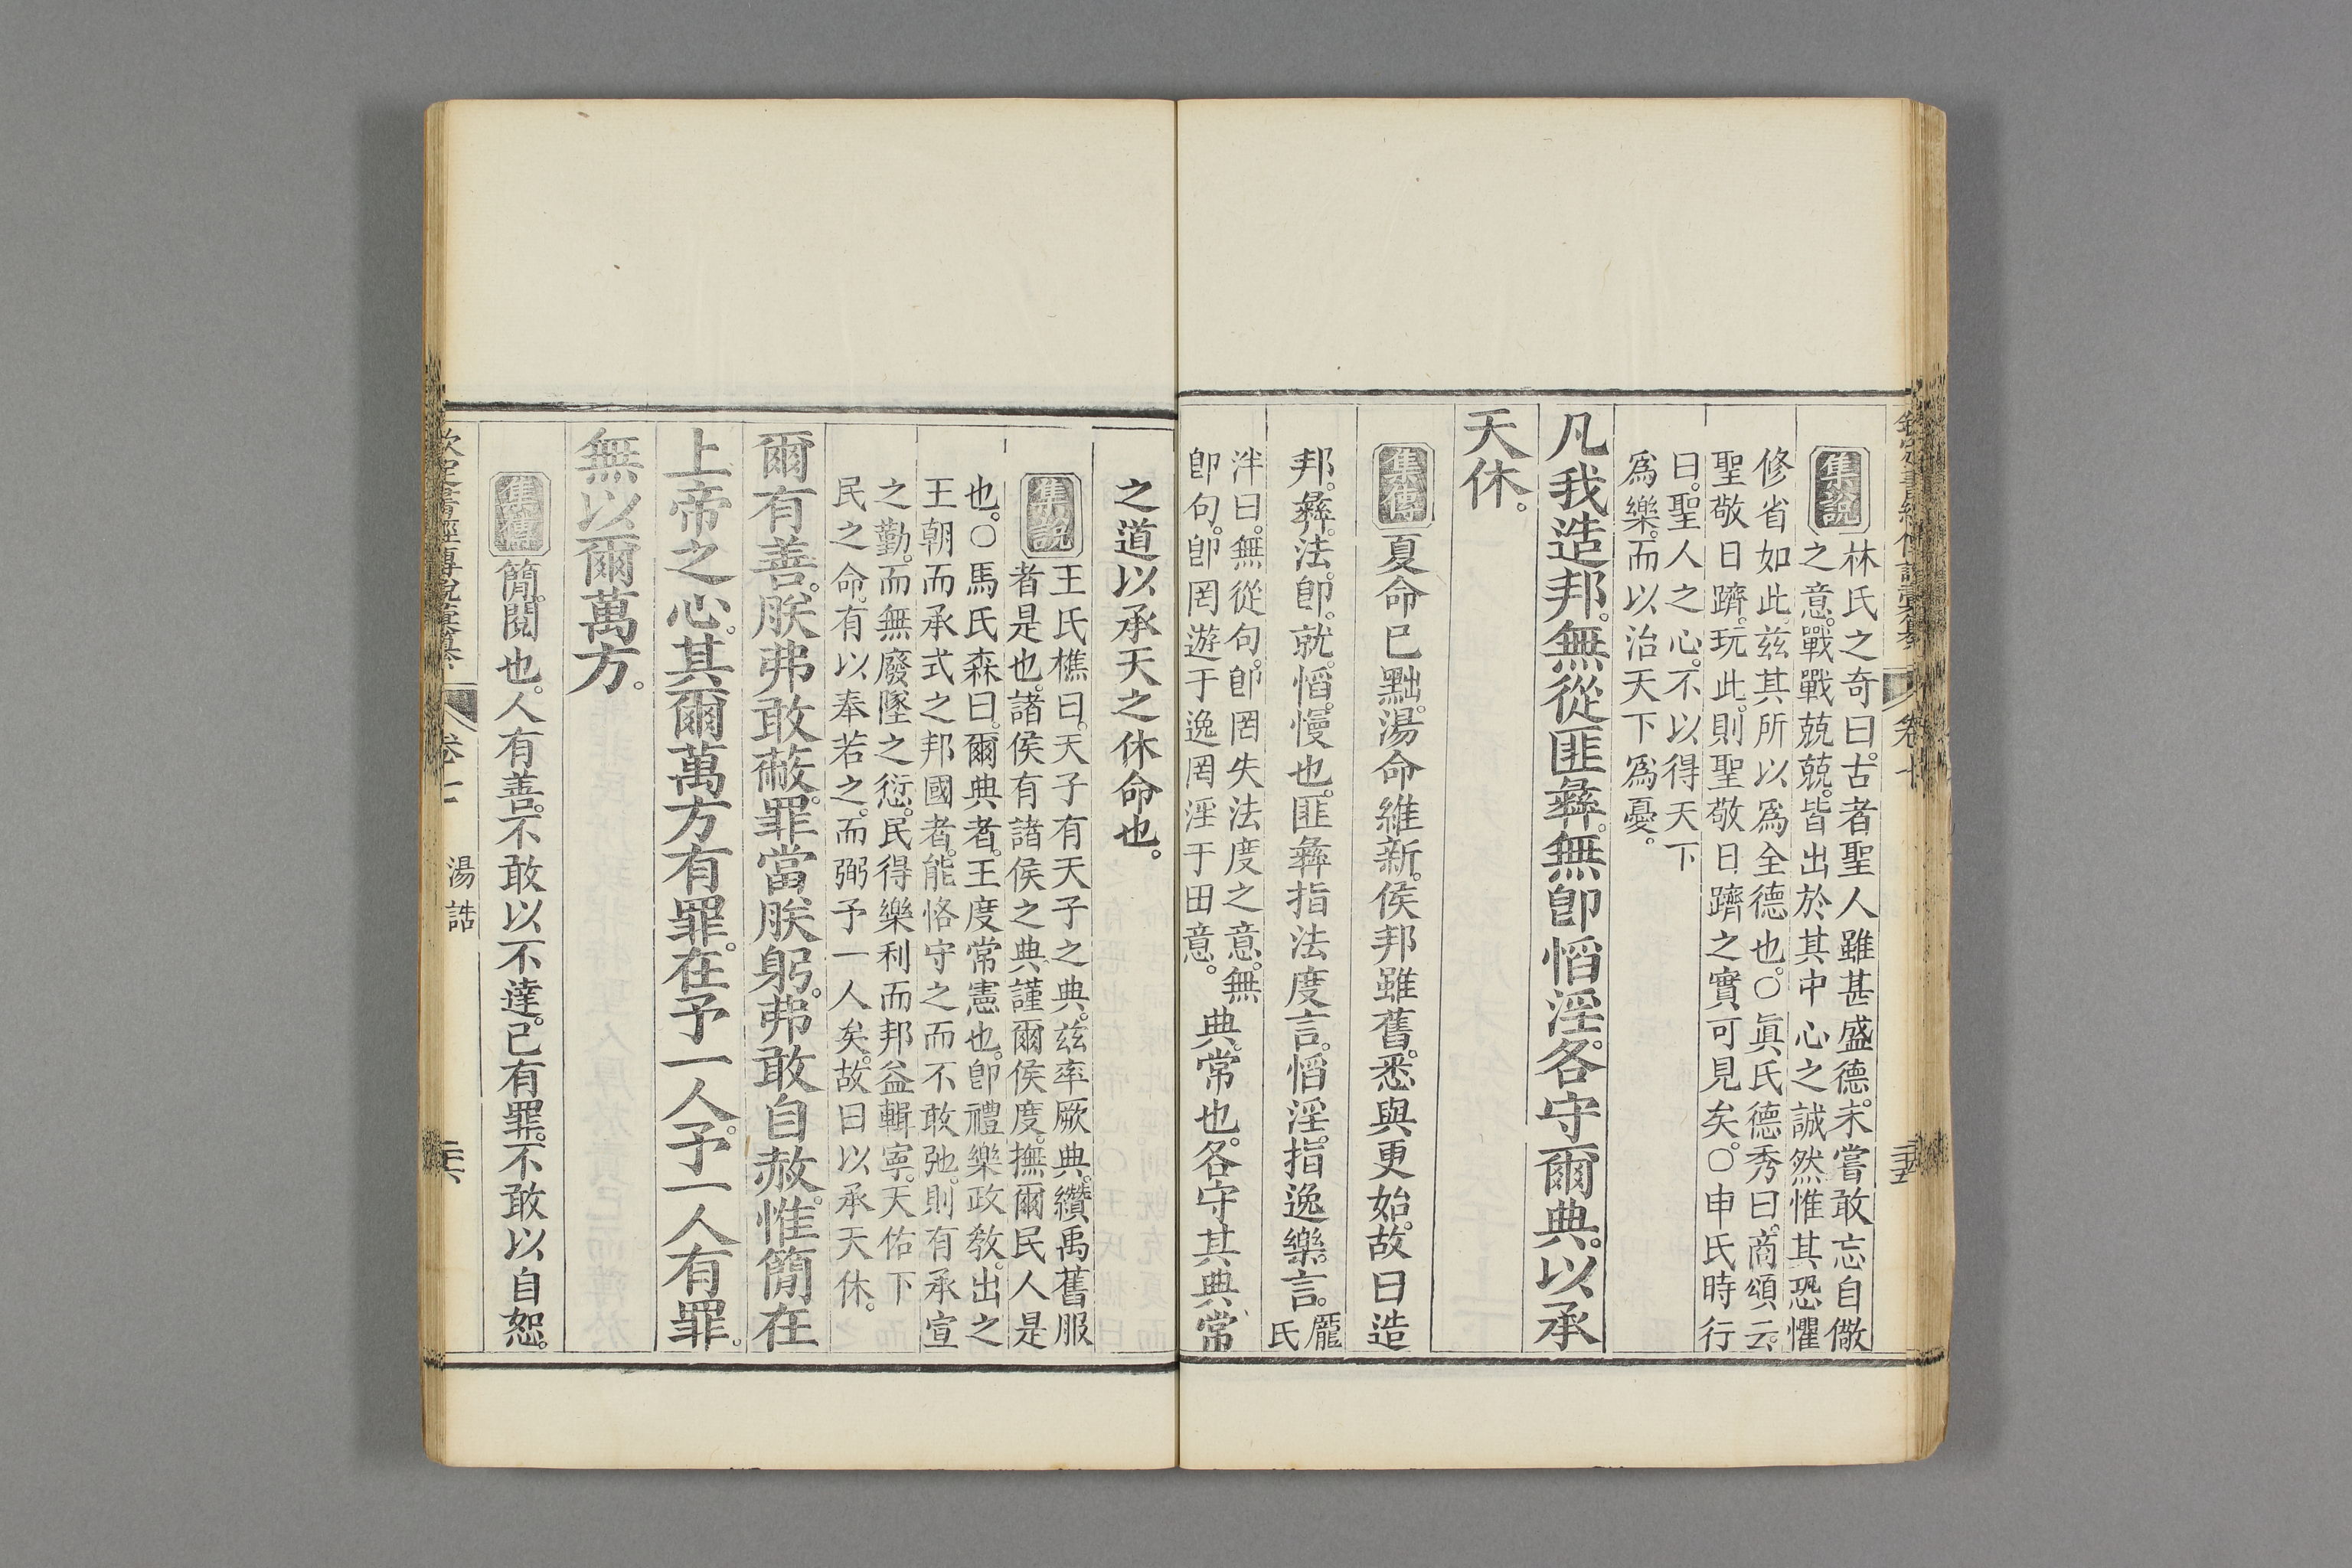 集說
林氏之奇曰。古者聖人雖甚盛德。未嘗敢忘自儆
之意。戰戰兢兢。皆出於其中心之誠然。惟其恐懼
修省如此。茲其所以爲全德也。○眞氏德秀曰。商頌云。
聖敬日躋。玩此。則聖敬日躋之實可見矣。○申氏時行
曰。聖人之心。不以得天下
爲樂。而以治天下爲憂。
凡我造邦。無從匪彝。無卽慆淫。各守爾典。以承
天休。
集傳
夏命已黜。湯命維新。侯邦雖舊。悉與更始。故曰造
邦。彝。法。卽。就。慆。慢也。匪彝指法度言。慆淫。指逸樂言。龎氏
泮曰。無從句。卽罔失法度之意。無
卽句。卽罔遊于逸罔淫于田意。
典。常也。各守其典常
之道以承天之休命也。
集說
王氏樵曰。天子有天子之典。茲率厥典。纘禹舊服
者是也。諸侯有諸侯之典。謹爾侯度。撫爾民人是
也。○馬氏森曰。爾典者。王度常憲也。卽禮樂政敎。出之
王朝而承式之邦國者。能恪守之而不敢弛。則有承宣
之勤。而無廢墜之愆。民得樂利而邦益輯寧。天佑下
民之命。有以奉若之。而弼予一人矣。故曰以承天休。
爾有善。朕弗敢蔽。罪當朕躬。弗敢自赦。惟簡在
上帝之心。其爾萬方有罪。在予一人。予一人有罪。
無以爾萬方。
集傳
簡。閱也。人有善。不敢以不達。已有罪。不敢以自恕。
欽定書經傳說彙纂 卷七 湯誥 三六